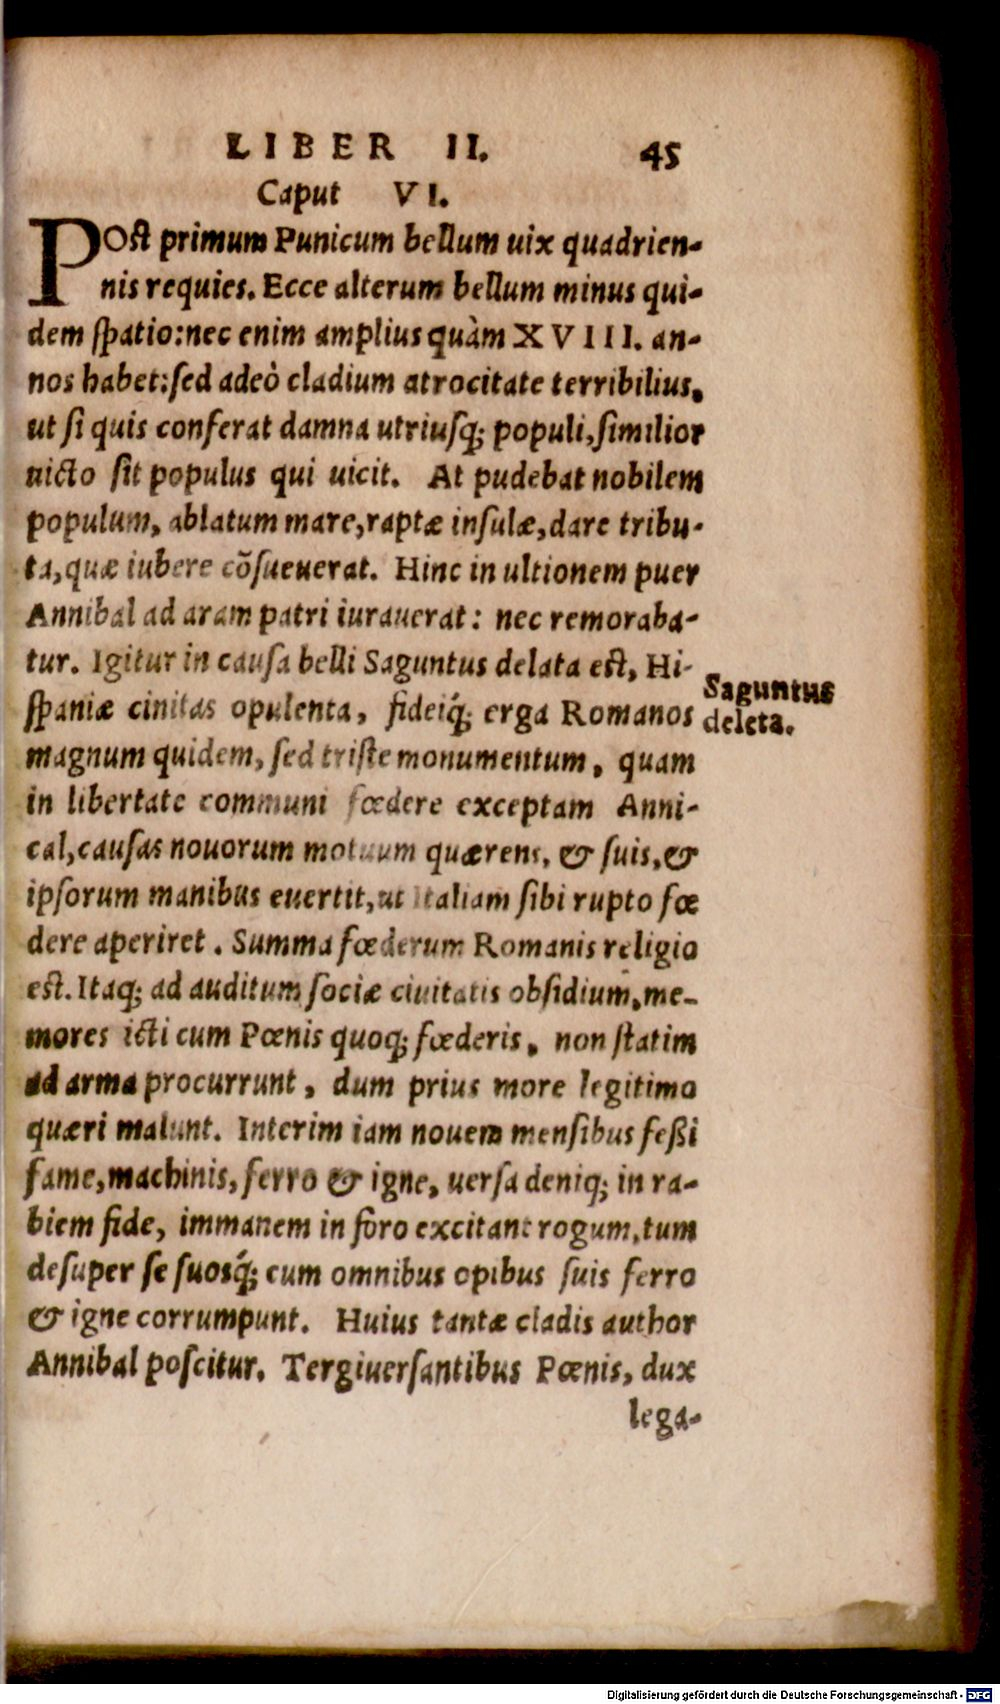 LIBER II. 45
Caput VI.
POst primum Punicum bellum uix quadrien-
nis requies. Ecce alterum bellum minus qui-
dem ſpatio: nec enim amplius quàm XVIII. an-
nos habet: ſed adeò cladium atrocitate terribilius,
ut ſi quis conferat damna utriuſq; populi, ſimilior
uicto ſit populus qui uicit. At pudebat nobilem
populum, ablatum mare, raptæ inſulæ, dare tribu-
ta, quæ iubere cõſueuerat. Hinc in ultionem puer
Annibal ad aram patri iurauerat: nec remoraba-
tur. Igitur in cauſa belli Saguntus delata eſt, Hi-
ſpaniæ cinitas opulenta, fideiq́; erga Romanos
Saguntus
deleta.
magnum quidem, ſed triſte monumentum, quam
in libertate communi fœdere exceptam Anni-
cal, cauſas nouorum motuum quærens, & ſuis, &
ipſorum manibus euertit, ut Italiam ſibi rupto fœ
dere aperiret. Summa fœderum Romanis religio
eſt. Itaq; ad auditum ſociæ ciuitatis obſidium, me-
mores icti cum Pœnis quoq; fœderis, non ſtatim
ad arma procurrunt, dum prius more legitimo
quæri malunt. Interim iam nouem menſibus feßi
fame, machinis, ferro & igne, uerſa deniq; in ra-
biem fide, immanem in foro excitant rogum, tum
deſuper ſe ſuosq́; cum omnibus opibus ſuis ferro
& igne corrumpunt. Huius tantæ cladis author
Annibal poſcitur. Tergiuerſantibus Pœnis, dux
lega-
Digitalisierung gefördert durch die Deutsche Forschungsgemeinschaft - DFG